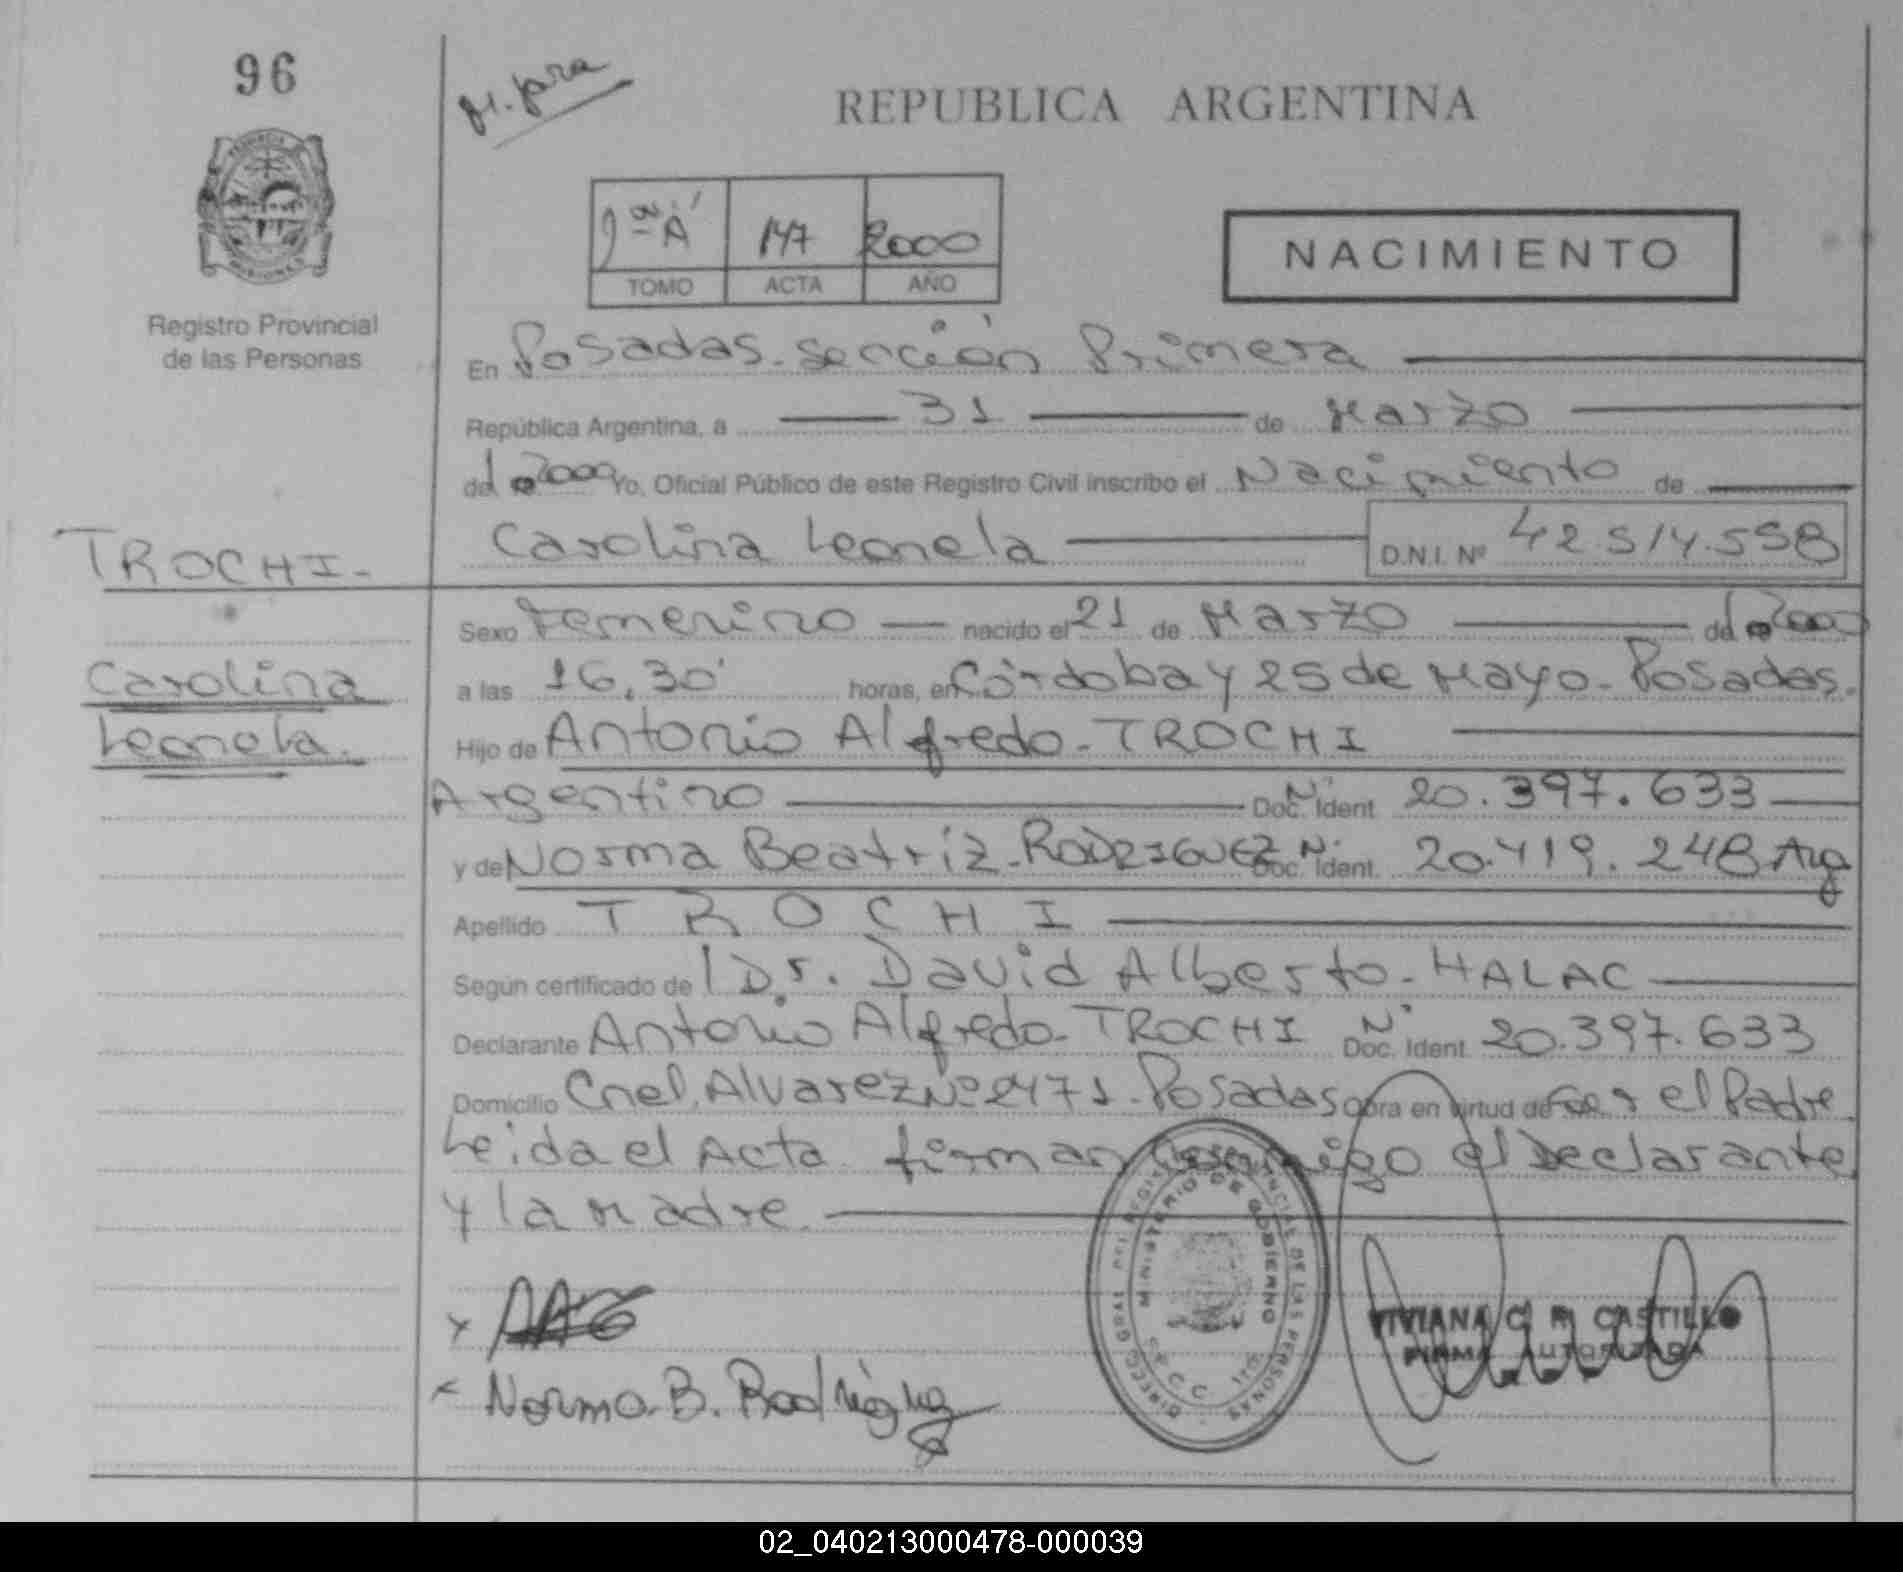 96
REPUBLICA ARGENTINA
147 2000
TOMO ACTA AÑO
NACIMIENTO
Registro Provincial
de las Personas
En Posadas - sección Primera
República Argentina, a 31 de Marzo
de 2000 Yo, Oficial Público de este Registro Civil inscribo el Nacimiento de
Carolina Leonela D.N.I. Nº 42.514.558
TROCHI.-
Carolina
Leonela.
Sexo Femenino nacido el 21 de Marzo de 2000
a las 16,30' horas, en Córdoba y 25 de Mayo - Posadas.
Hijo de Antonio Alfredo - TROCHI
Argentino Doc. Ident. Nº 20.397.633
y de Norma Beatriz - RODRIGUEZ Doc. Ident. Nº 20.419.248 Arg
Apellido TROCHI
Según certificado de l Dr. David Alberto - HALAC
Declarante Antonio Alfredo - TROCHI Doc. Ident. Nº 20.397.633
Domicilio Cnel. Alvarez Nº 2471 - Posadas Obra en virtud de ser el Padre.
Leida el Acta firman conmigo el Declarante
y la Madre.
x
x Norma B. Rodríguez
DIRECC GRAL DEL REGISTRO PROVINCIAL DE LAS PERSONAS
MINISTERIO DE GOBIERNO
VIVIANA C. R. CASTILLO
FIRMA AUTORIZADA
02_040213000478-000039